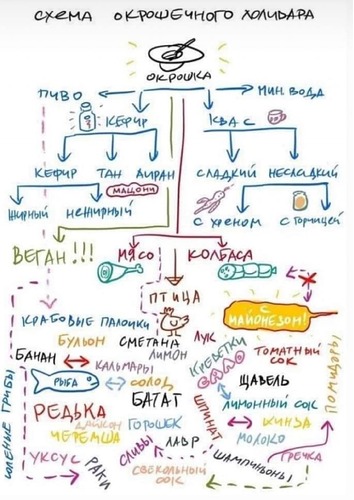 СХЕМА ОКРОШЕЧНОГО ХОЛИВАРА
ОКРОШКА
ПИВО
МИН. ВОДА
КЕФИР
КВАС
КЕФИР ТАН АЙРАН
МАЦОНИ
СЛАДКИЙ НЕСЛАДКИЙ
ЖИРНЫЙ НЕЖИРНЫЙ
С ХРЕНОМ С ГОРЧИЦЕЙ
ВЕГАН!!!
МЯСО КОЛБАСА
ПТИЦА
С МАЙОНЕЗОМ!
КРАБОВЫЕ ПАЛОЧКИ
БУЛЬОН СМЕТАНА ЛУК
ПОМИДОРЫ
БАНАН ЛИМОН КРЕВЕТКИ ТОМАТНЫЙ СОК
КАЛЬМАРЫ
РЫБА СОЛОД ЩАВЕЛЬ
СОЛЕНЫЕ ГРИБЫ
БАТАТ ШПИНАТ ЛИМОННЫЙ СОК
РЕДЬКА
ДАЙКОН ГОРОШЕК КИНЗА
ЧЕРЕМША МОЛОКО
СЛИВЫ ЛАВР
УКСУС РАКИ ШАМПИНЬОНЫ ГРЕЧКА
СВЕКОЛЬНЫЙ СОК